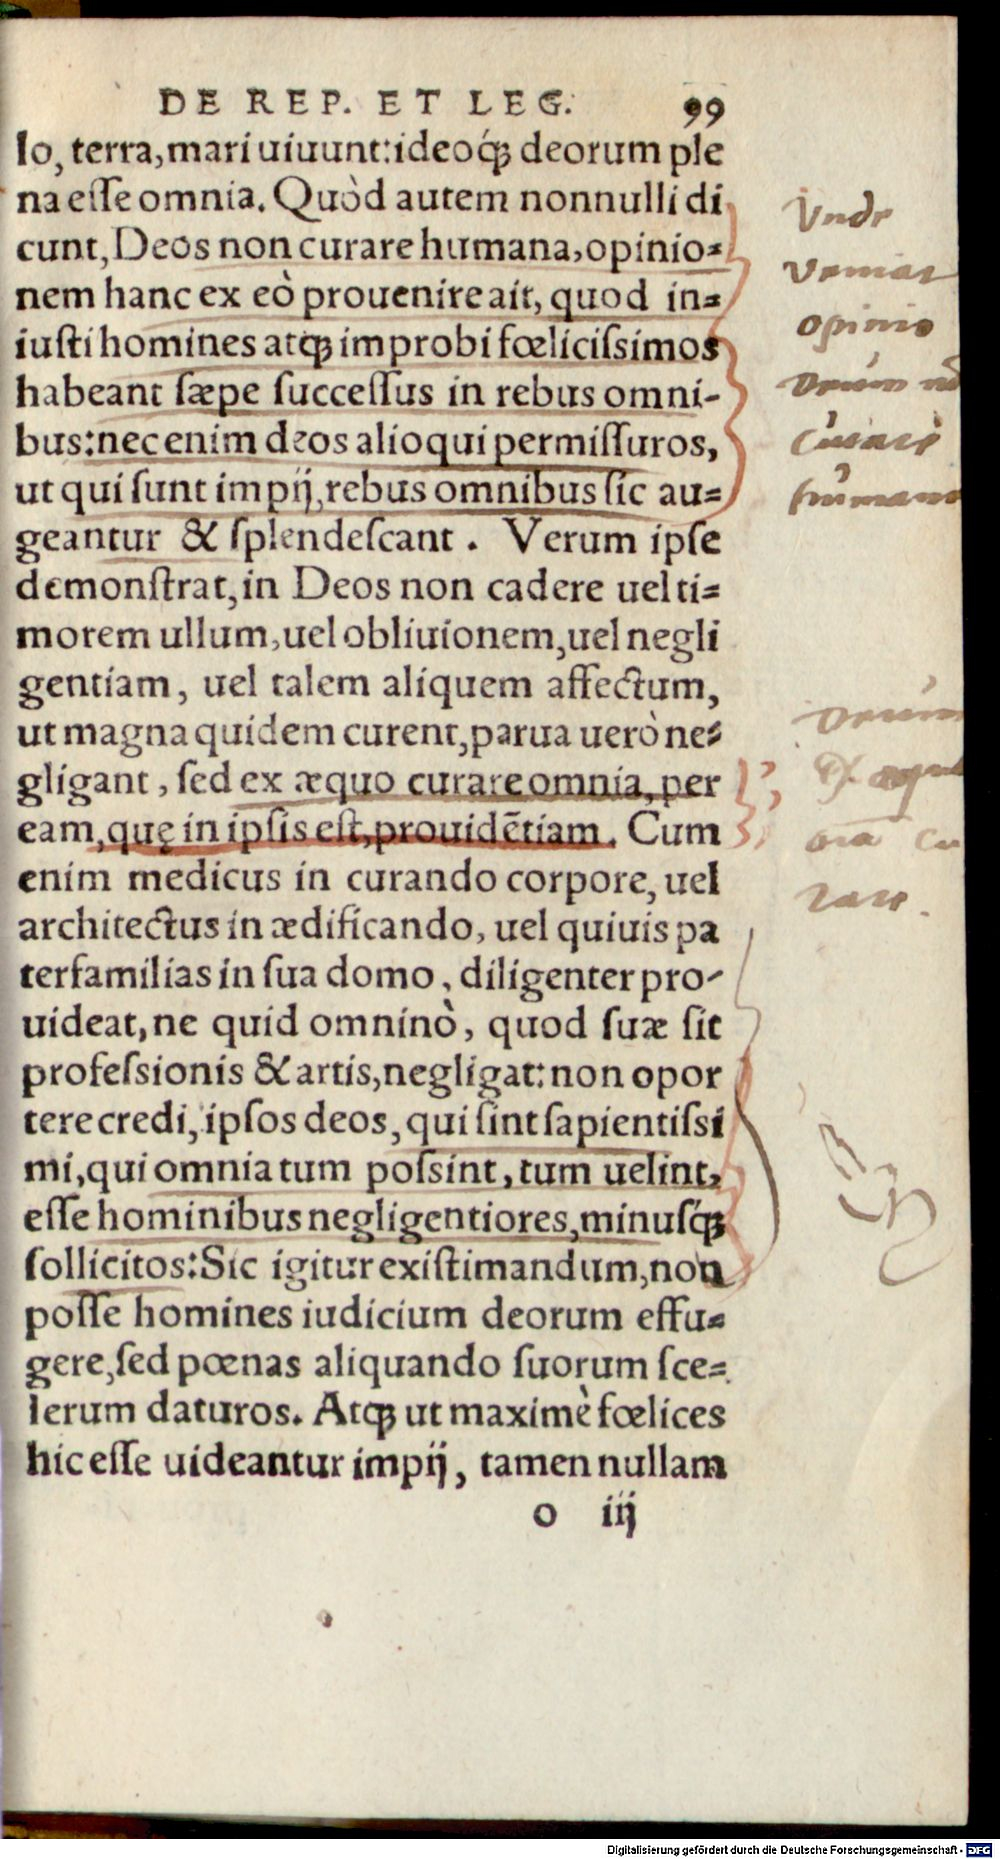 DE REP. ET LEG. 99
lo, terra, mari uiuunt: ideoq́ꝫ deorum ple
na eſſe omnia. Quòd autem nonnulli di
cunt, Deos non curare humana, opinio-
nem hanc ex eò prouenire ait, quod in-
iuſti homines atqꝫ improbi fœliciſsimos
habeant sæpe ſucceſſus in rebus omni-
bus: nec enim deos alioqui permiſſuros,
ut qui ſunt impij, rebus omnibus ſic au-
geantur & ſplendeſcant. Verum ipſe
demonſtrat, in Deos non cadere uel ti-
morem ullum, uel obliuionem, uel negli
gentiam, uel talem aliquem affectum,
ut magna quidem curent, parua uerò ne-
gligant, ſed ex æquo curare omnia, per
eam, quę in ipſis eſt, prouidẽtiam. Cum
enim medicus in curando corpore, uel
architectus in ædificando, uel quiuis pa
terfamilias in ſua domo, diligenter pro-
uideat, ne quid omninò, quod ſuæ ſit
profeſsionis & artis, negligat: non opor
tere credi, ipſos deos, qui ſint sapientiſsi
mi, qui omnia tum poſsint, tum uelint,
eſſe hominibus negligentiores, minuſq́ꝫ
ſollicitos: Sic igitur exiſtimandum, non
poſſe homines iudicium deorum effu-
gere, ſed pœnas aliquando ſuorum ſce-
lerum daturos. Atqꝫ ut maximè fœlices
hic eſſe uideantur impij, tamen nullam
o iij
Vnde
veniat
opinio
Deum nō
curare
humana
Deum
ex
oīa cu
rare.
Digitalisierung gefördert durch die Deutsche Forschungsgemeinschaft - DFG